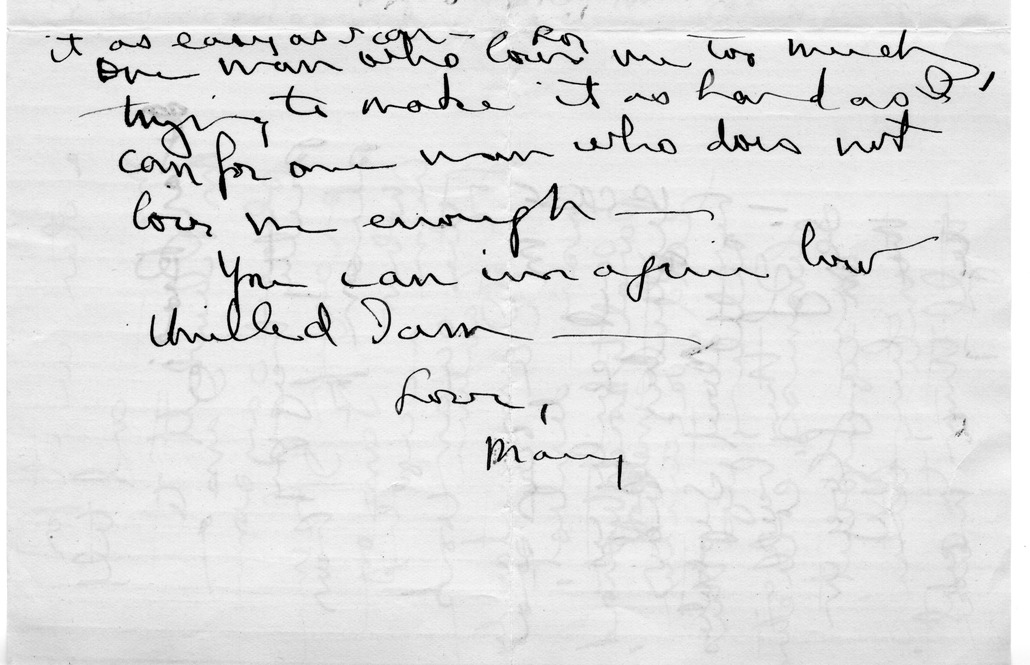 it as easy as I can — for
one man who loves me too much,
trying to make it as hard as I
can for one man who does not
love me enough —
You can imagine how
thrilled I am —
Love,
Mary